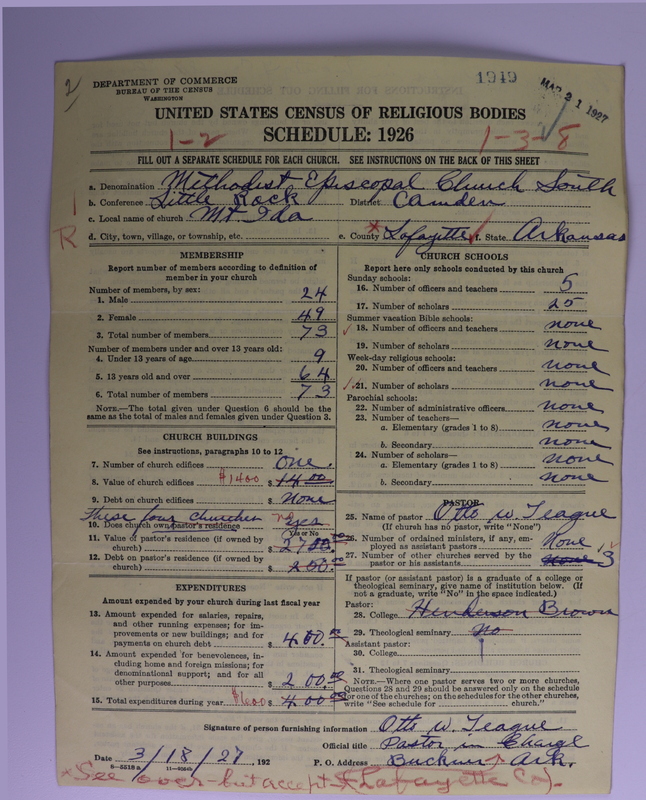 2
DEPARTMENT OF COMMERCE
BUREAU OF THE CENSUS
WASHINGTON
1949
MAR 21 1927
UNITED STATES CENSUS OF RELIGIOUS BODIES
SCHEDULE: 1926
1-2
1-3-8
FILL OUT A SEPARATE SCHEDULE FOR EACH CHURCH. SEE INSTRUCTIONS ON THE BACK OF THIS SHEET
a. Denomination Methodist Episcopal Church South
b. Conference Little Rock District Camden
c. Local name of church Mt Ida
R
d. City, town, village, or township, etc. e. County Lafayette f. State Arkansas
MEMBERSHIP
Report number of members according to definition of
member in your church
Number of members, by sex:
1. Male 24
2. Female 49
3. Total number of members 73
Number of members under and over 13 years old:
4. Under 13 years of age 9
5. 13 years old and over 64
6. Total number of members 73
NOTE.—The total given under Question 6 should be the
same as the total of males and females given under Question 3.
CHURCH BUILDINGS
See instructions, paragraphs 10 to 12
7. Number of church edifices one.
8. Value of church edifices $1400 $ 14 00
9. Debt on church edifices $ None
These four churches no
10. Does church own pastor's residence yes
Yes or No
11. Value of pastor's residence (if owned by
church) $ 2700.00
12. Debt on pastor's residence (if owned by
church) $ 200.00
EXPENDITURES
Amount expended by your church during last fiscal year
13. Amount expended for salaries, repairs,
and other running expenses; for im-
provements or new buildings; and for
payments on church debt $ 400.00
14. Amount expended for benevolences, in-
cluding home and foreign missions; for
denominational support; and for all
other purposes $ 200.00
15. Total expenditures during year $600 $ 400 00
CHURCH SCHOOLS
Report here only schools conducted by this church
Sunday schools:
16. Number of officers and teachers 5
17. Number of scholars 25
Summer vacation Bible schools:
18. Number of officers and teachers none
19. Number of scholars none
Week-day religious schools:
20. Number of officers and teachers none
21. Number of scholars none
Parochial schools:
22. Number of administrative officers none
23. Number of teachers—
a. Elementary (grades 1 to 8) none
b. Secondary none
24. Number of scholars—
a. Elementary (grades 1 to 8) none
b. Secondary none
PASTOR
25. Name of pastor Otto W. Teague
(If church has no pastor, write "None")
26. Number of ordained ministers, if any, em-
ployed as assistant pastors None
27. Number of other churches served by the
pastor or his assistants none 3
If pastor (or assistant pastor) is a graduate of a college or
theological seminary, give name of institution below. (If
not a graduate, write "No" in the space indicated.)
Pastor:
28. College Henderson Brown
29. Theological seminary No
Assistant pastor:
30. College
31. Theological seminary
NOTE.—Where one pastor serves two or more churches,
Questions 28 and 29 should be answered only on the schedule
for one of the churches; on the schedules for the other churches,
write "See schedule for church."
Signature of person furnishing information Otto W. Teague
Official title Pastor in Charge
Date 3/18/27, 192 P. O. Address Buckner, Ark.
8-5518a
*See over-but accept Lafayette Co.